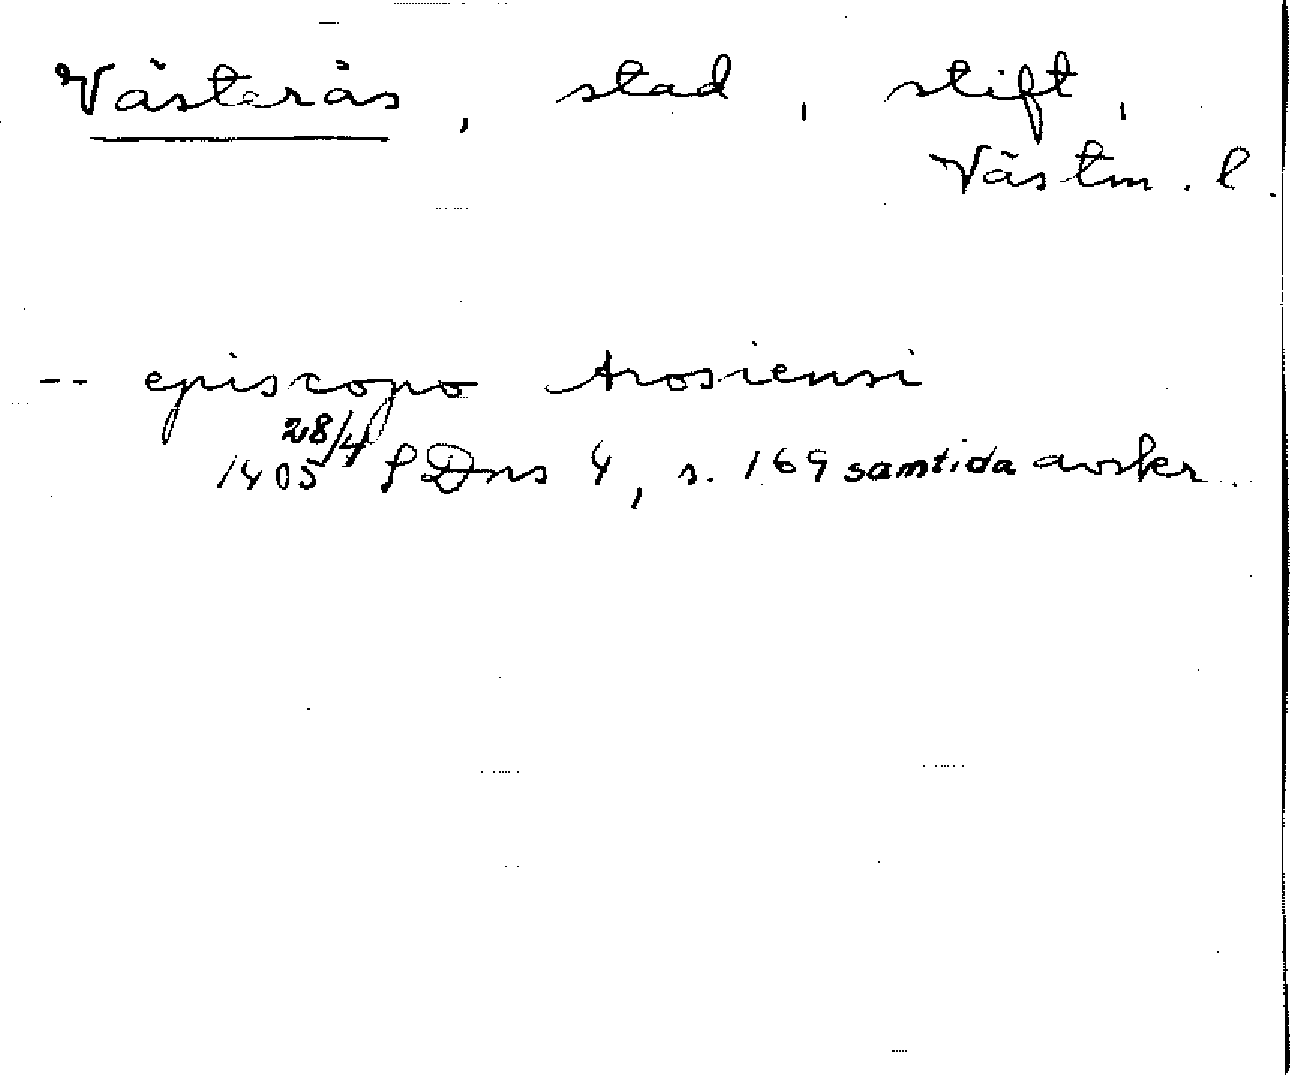 Västerås, stad, stift,
Västm. l.
-- episcopo Arosiensi
28/4
1405 SDns 4, s. 169 samtida avskr.